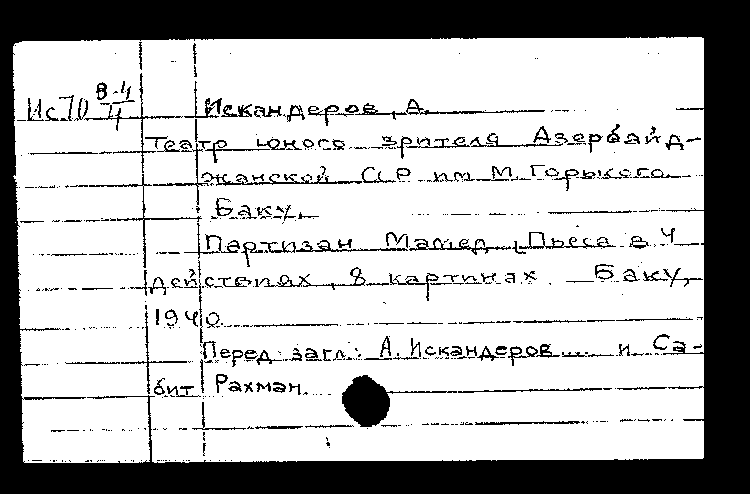 Ис70 8-4/4
Искандеров, А.
Театр юного зрителя Азербайд-
жанской ССР им М. Горького.
Баку.
Партизан Мамед. Пьеса в 4
действиях, 8 картинах. Баку,
1940
Перед загл: А. Искандеров.... и Са-
бит Рахман.